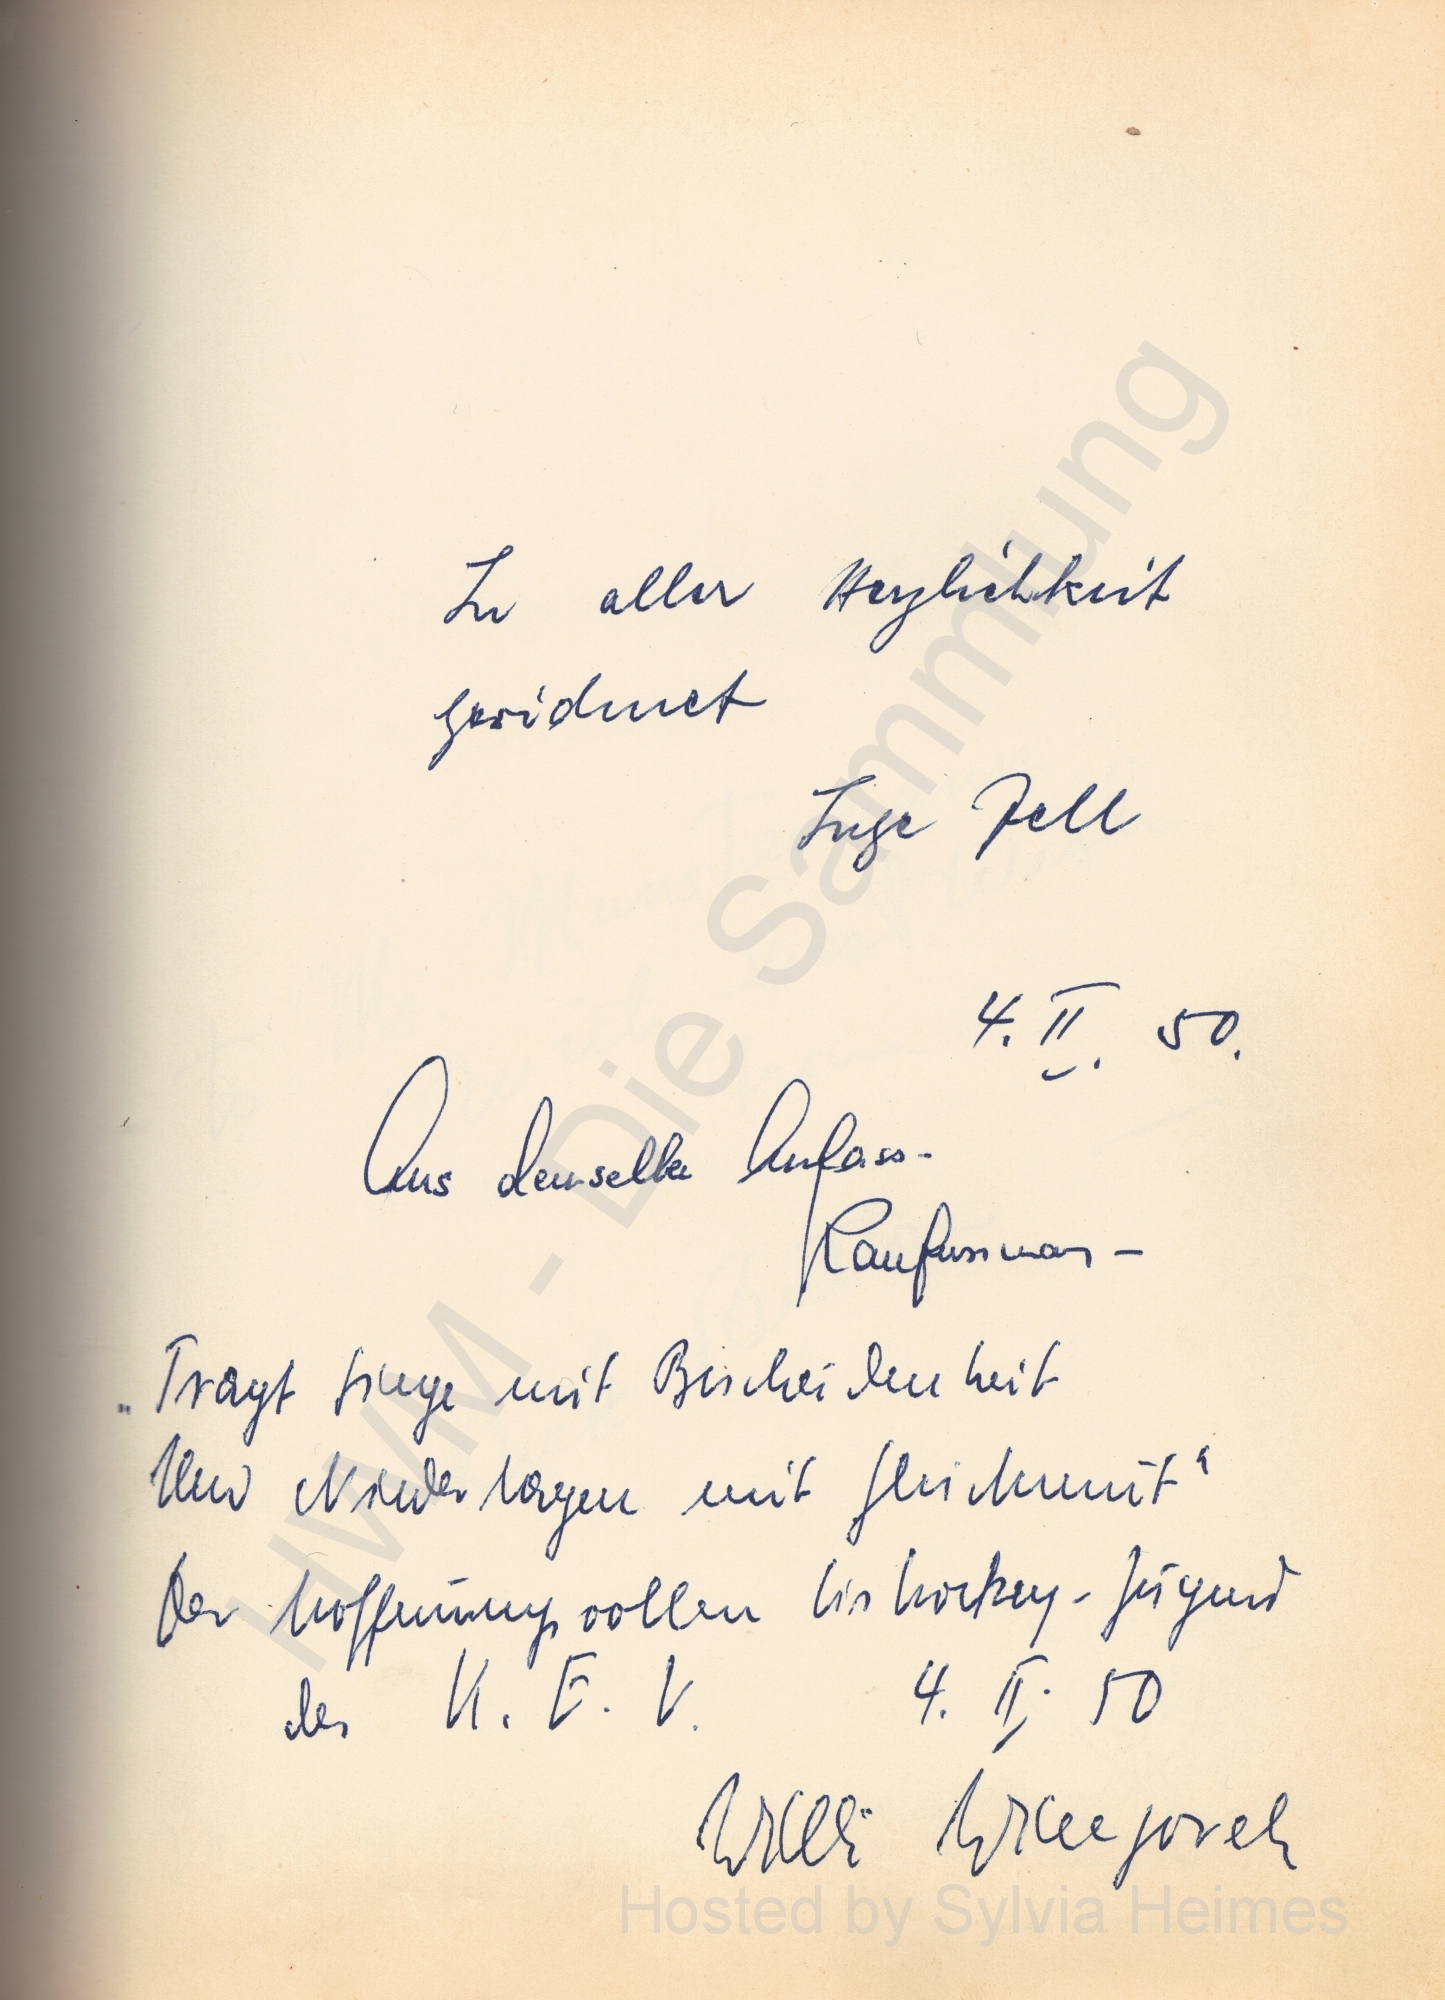 In aller Herzlichkeit
gewidmet
Inge Jell
4. II. 50.
Aus demselben Anlass -
„Tragt Siege mit Bescheidenheit
Und Niederlagen mit Gleichmut“
Der hoffnungsvollen Eishockey-Jugend
des K. E. V. 4. II. 50
Willi
HVM - Die Sammlung
Hosted by Sylvia Heimes